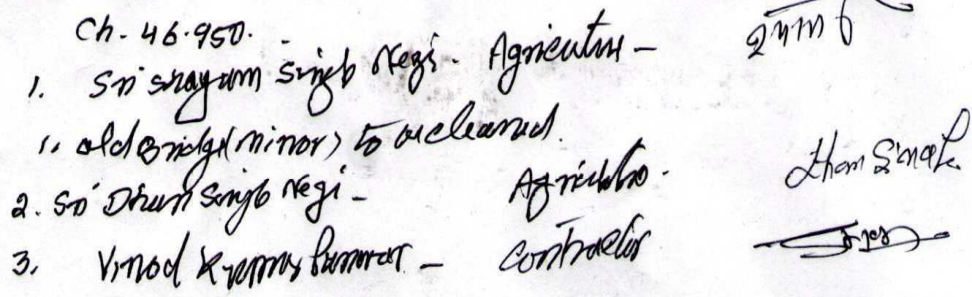 Ch. 46.950.
1. Sri Shayam Singh Negi. Agriculture -
1. old Bridge (minor) to be cleaned.
2. Sri Dham Singh Negi - Agriculture. Dham Singh
3. Vinod Kumar Panwar - Contractor